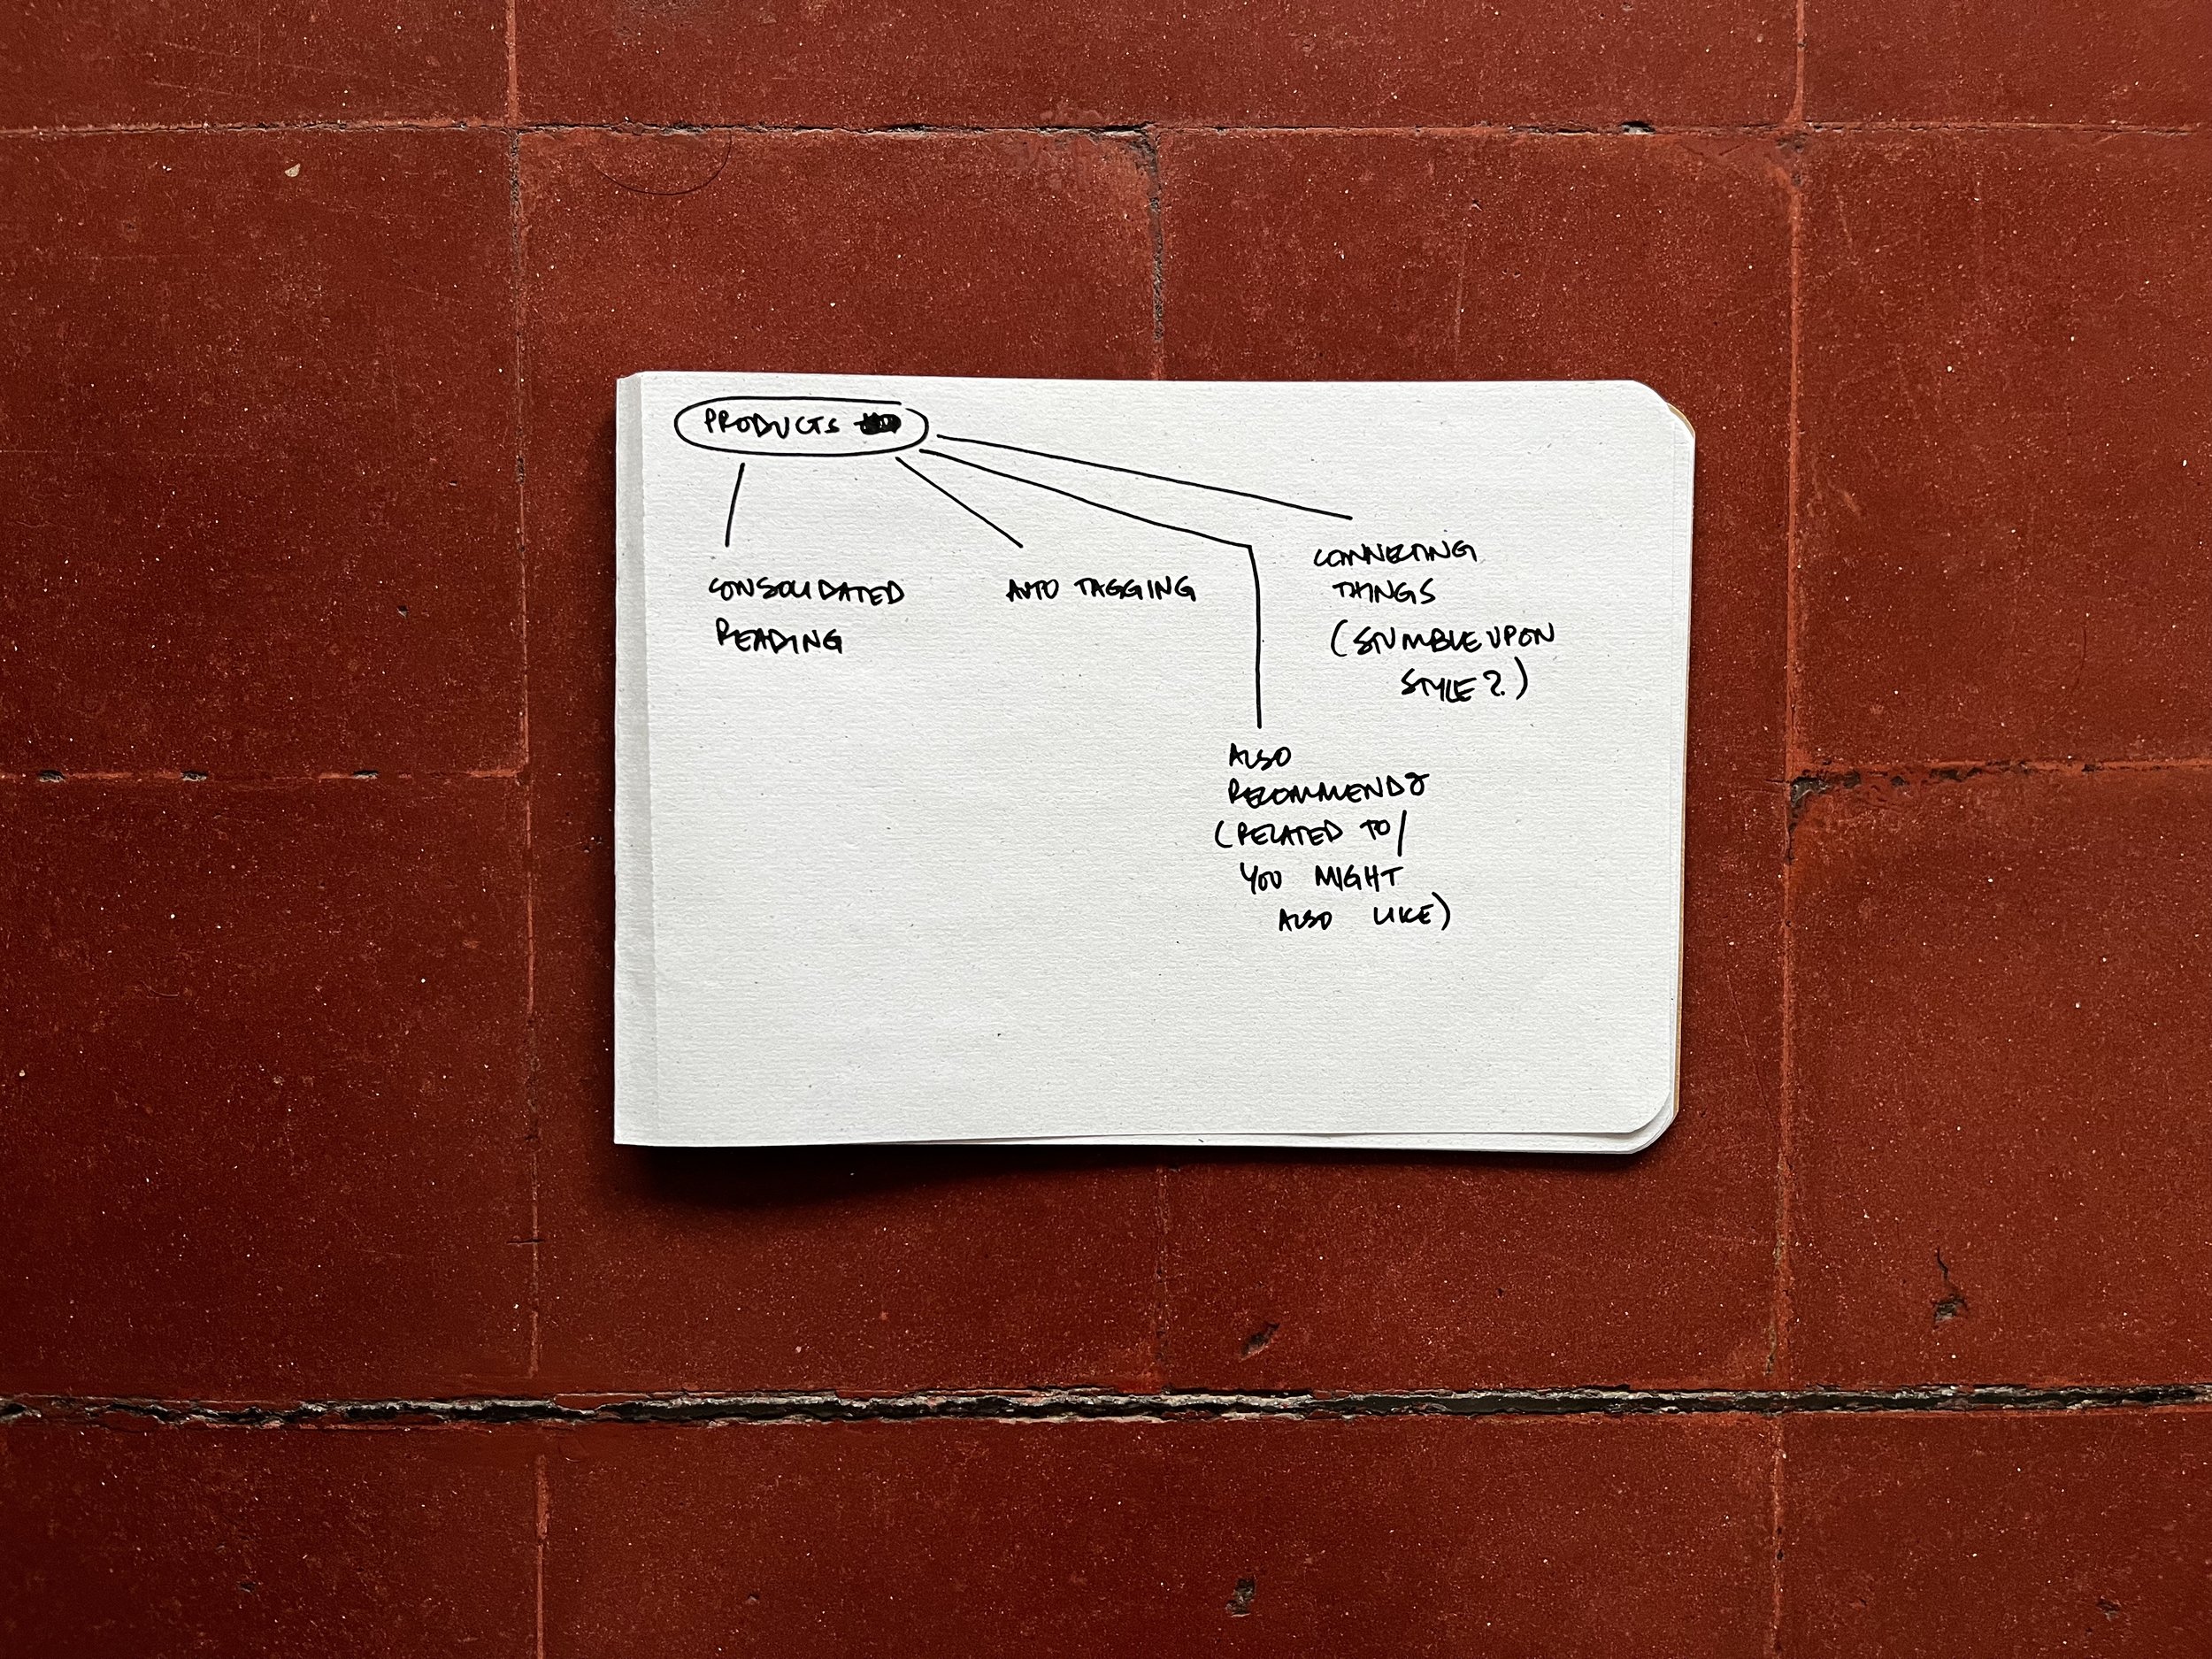 PRODUCTS
CONSOLIDATED
READING
AUTO TAGGING
ALSO
RECOMMENDS
(RELATED TO/
YOU MIGHT
ALSO LIKE)
CONNECTING
THINGS
(STUMBLEUPON
STYLE?)